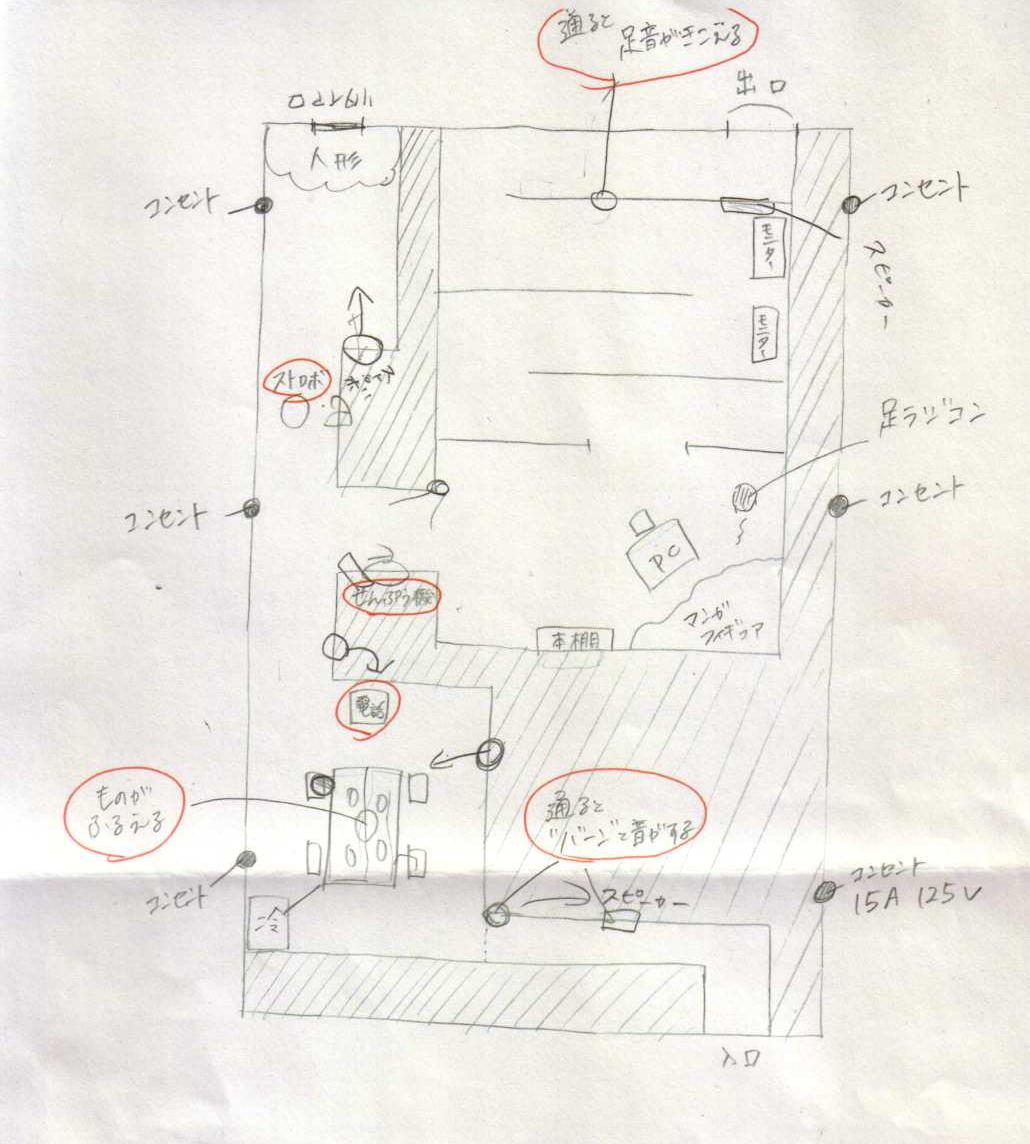 通ると
足音がきこえる
出口
人形
コンセント
コンセント
モニター
スピーカー
モニター
ストロボ
足ラジコン
コンセント
コンセント
PC
せんぷう機
マンガ
フィギュア
本棚
電話
ものが
ふるえる
通ると
"バーン"と音がする
コンセント
コンセント
15A 125V
スピーカー
冷
入口